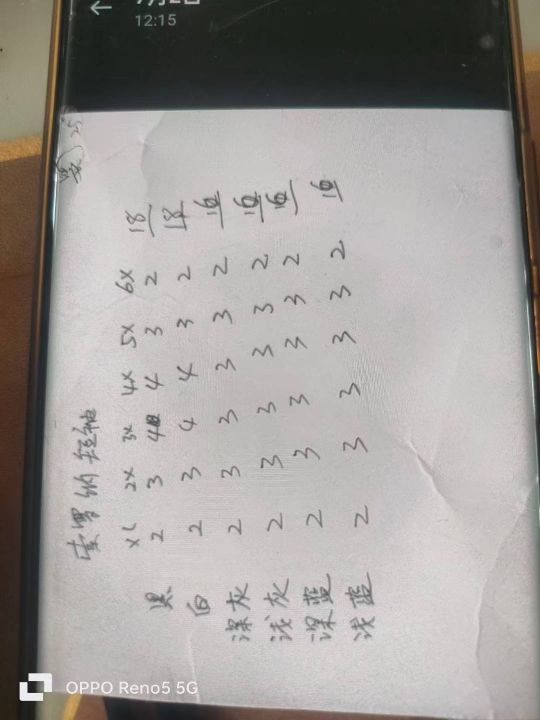 7月2日
12:15
索罗纳短袖
XL 2X 3X 4X 5X 6X
黑 2 3 4 4 3 2 18
白 2 3 4 4 3 2 18
深灰 2 3 3 3 3 2 16
浅灰 2 3 3 3 3 2 16
深蓝 2 3 3 3 3 2 16
浅蓝 2 3 3 3 3 2 16
25
OPPO Reno5 5G